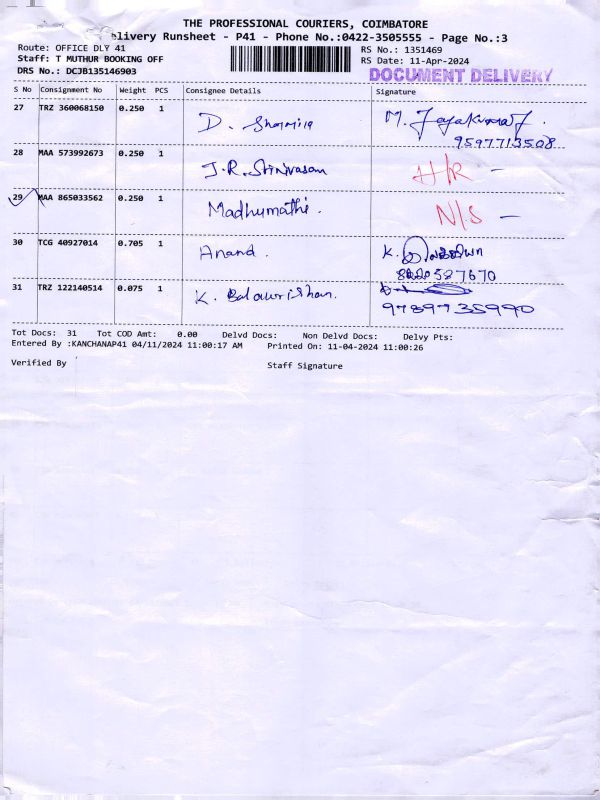 THE PROFESSIONAL COURIERS, COIMBATORE
elivery Runsheet - P41 - Phone No.:0422-3505555 - Page No.:3
Route: OFFICE DLY 41 RS No.: 1351469
Staff: T MUTHUR BOOKING OFF RS Date: 11-Apr-2024
DRS No.: DCJB135146903 DOCUMENT DELIVERY
S No Consignment No Weight PCS Consignee Details Signature
27 TRZ 360068150 0.250 1 D. Sharmila M. Jayakumar
9597713508
28 MAA 573992673 0.250 1 J.R. Srinivasan
29 MAA 865033562 0.250 1 Madhumathi. N/S —
30 TCG 40927014 0.705 1 Anand. K.
8220587670
31 TRZ 122140514 0.075 1 K. Balakrishan.
9789735990
Tot Docs: 31 Tot COD Amt: 0.00 Delvd Docs: Non Delvd Docs: Delvy Pts:
Entered By :KANCHANAP41 04/11/2024 11:00:17 AM Printed On: 11-04-2024 11:00:26
Verified By Staff Signature